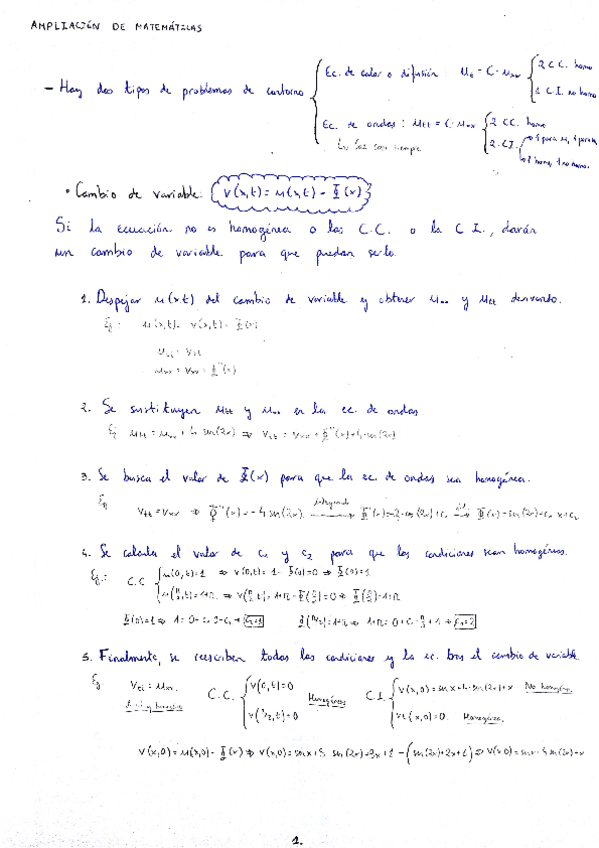 AMPLIACIÓN DE MATEMÁTICAS
- Hay dos tipos de problemas de contorno
Ec. de calor o difusión u_t = C · u_xx
2 C.C. homo
1 C.I. no homo
Ec. de ondas: u_tt = C · u_xx
2 CC. homo
2 CI.
1 homo, 1 no homo.
• Cambio de variable: v(x,t) = u(x,t) - Φ(x)
Si la ecuación no es homogénea o las C.C. o la C I., darán
un cambio de variable para que puedan serlo.
1. Despejar u(x,t) del cambio de variable y obtener u_xx y u_tt derivando.
Ej: u(x,t) = v(x,t) + Φ(x)
u_tt = v_tt
u_xx = v_xx + Φ''(x)
2. Se sustituyen u_tt y u_xx en la ec. de ondas
Ej u_tt = u_xx + 4 sen(2x) ⇒ v_tt = v_xx + Φ''(x) + 4 sen(2x)
3. Se busca el valor de Φ(x) para que la ec. de ondas sea homogénea.
Ej v_tt = v_xx ⇒ Φ''(x) = -4 sen(2x) integrando Φ'(x) = 2 cos(2x) + c₁ Φ(x) = sen(2x) + c₁ x + c₂
4. Se calcula el valor de c₁ y c₂ para que las condiciones sean homogéneas.
Ej: C.C u(0,t) = 1 ⇒ v(0,t) = 1 - Φ(0) = 0 ⇒ Φ(0) = 1
u(π/2,t) = 1+π ⇒ v(π/2,t) = 1+π - Φ(π/2) = 0 ⇒ Φ(π/2) = 1+π
5. Finalmente, se reescriben todas las condiciones y la ec. tras el cambio de variable.
Ej v_tt = v_xx C.C. v(0,t) = 0 Homogéneas C.I. No homogénea.
v(π/2,t) = 0 v_t(x,0) = 0. Homogénea.
v(x,0) = u(x,0) - Φ(x) ⇒
1.